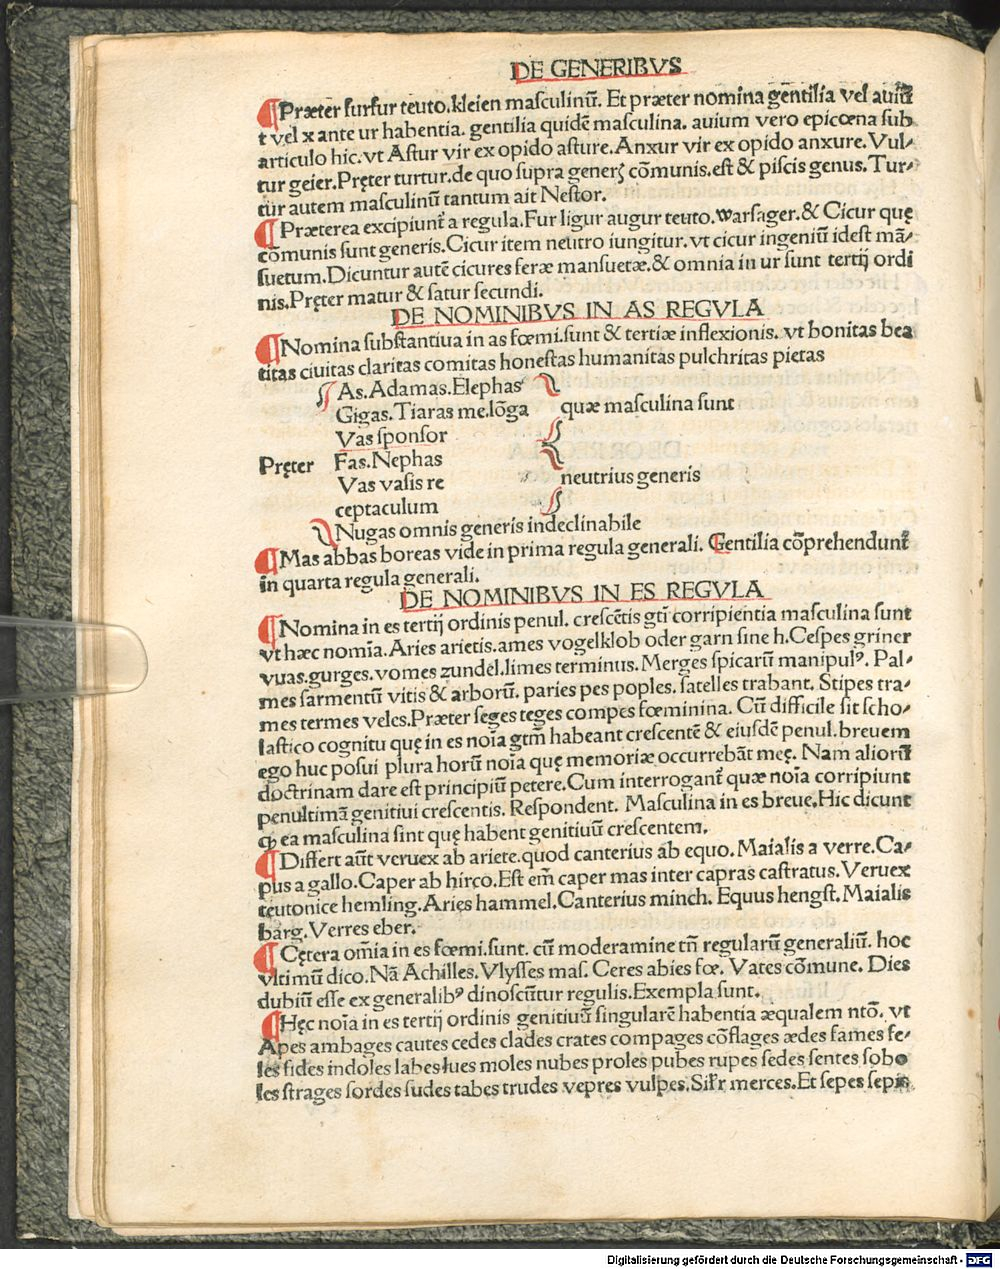 DE GENERIBVS
¶Præter furfur teuto.kleien masculinū. Et præter nomina gentilia vel auiū
t vel x ante ur habentia. gentilia quidē masculina. auium vero epicœna sub
articulo hic.vt Astur vir ex opido asture.Anxur vir ex opido anxure.Vul⸗
tur geier.Pręter turtur.de quo supra generꝭ cōmunis.est & piscis genus.Tur⸗
tur autem masculinū tantum ait Nestor.
¶Præterea excipiunt̄ a regula.Fur ligur augur teuto.warsager.& Cicur quę
cōmunis sunt generis.Cicur item neutro iungitur. vt cicur ingeniū idest mā⸗
suetum.Dicuntur autē cicures feræ mansuetæ.& omnia in ur sunt tertij ordi
nis.Pręter matur & satur secundi.
DE NOMINIBVS IN AS REGVLA
¶Nomina substantiua in as fœmi.sunt & tertiæ inflexionis. vt bonitas bea
titas ciuitas claritas comitas honestas humanitas pulchritas pietas
As.Adamas.Elephas
Gigas.Tiaras me.lōga quæ masculina sunt
Vas sponsor
Pręter Fas.Nephas
Vas vasis re neutrius generis
ceptaculum
Nugas omnis generis indeclinabile
¶Mas abbas boreas vide in prima regula generali. Gentilia cōprehendunt̄
in quarta regula generali.
DE NOMINIBVS IN ES REGVLA
¶Nomina in es tertij ordinis penul. crescētis gtī corripientia masculina sunt
vt hæc nomīa.Aries arietis.ames vogelklob oder garn sine h.Cespes griner
vuas.gurges.vomes zundel.limes terminus. Merges spicarū manipulꝰ. Pal⸗
mes sarmentū vitis & arborū. paries pes poples. satelles trabant. Stipes tra⸗
mes termes veles.Præter seges teges compes fœminina. Cū difficile sit scho⸗
lastico cognitu quę in es noīa gtm̄ habeant crescentē & eiusdē penul.breuem
ego huc posui plura horū noīa quę memoriæ occurrebāt meę. Nam aliorū
doctrinam dare est principiū petere.Cum interrogant̄ quæ noīa corripiunt
penultimā genitiui crescentis. Respondent. Masculina in es breue.Hic dicunt
ꝙ ea masculina sint quę habent genitiuū crescentem.
¶Differt aūt veruex ab ariete.quod canterius ab equo. Maialis a verre.Ca⸗
pus a gallo.Caper ab hirco.Est em̄ caper mas inter capras castratus. Veruex
teutonice hemling.Aries hammel.Canterius minch. Equus hengst. Maialis
barg.Verres eber.
¶Cętera om̄ia in es fœmi.sunt. cū moderamine tn̄ regularū generaliū. hoc
vltimū dico.Nā Achilles.Vlysses mas. Ceres abies fœ. Vates cōmune. Dies
dubiū esse ex generalibꝰ dinoscūtur regulis.Exempla sunt.
¶Hęc noīa in es tertij ordinis genitiuū singularē habentia æqualem ntō. vt
Apes ambages cautes cedes clades crates compages cōflages ædes fames fe⸗
les fides indoles labes lues moles nubes proles pubes rupes sedes sentes sobo
les strages sordes sudes tabes trudes vepres vulpes.Silr̄ merces.Et sepes sepis
Digitalisierung gefördert durch die Deutsche Forschungsgemeinschaft - DFG